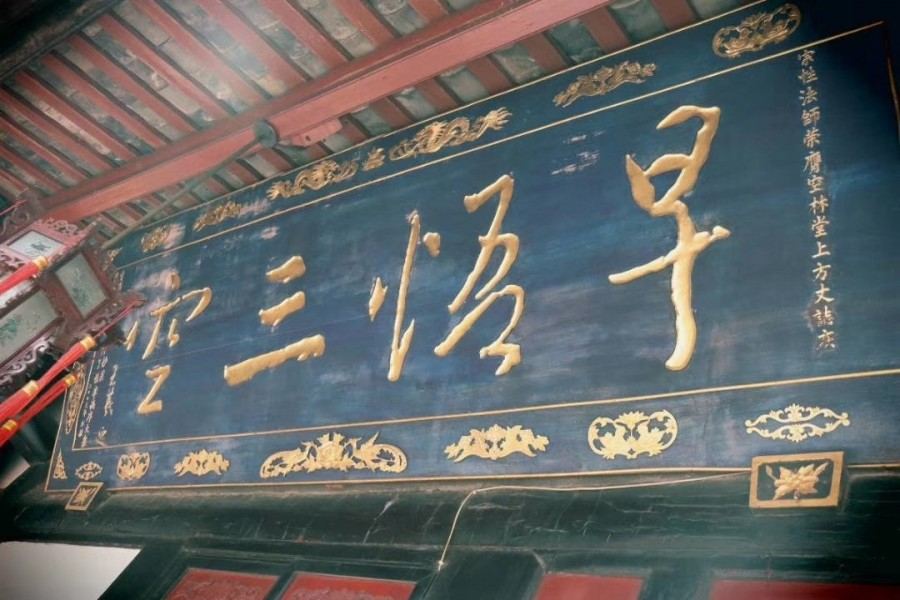 宗性法師榮膺空林堂上方丈誌慶
早悟三空